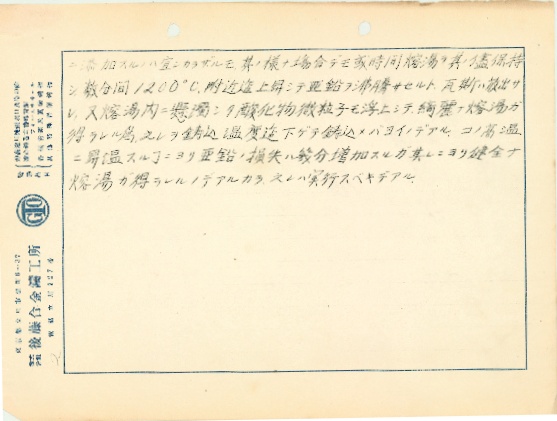 ニ添加スルノハ宜シカラザルモ、其ノ様ナ場合デモ数時間熔湯ヲ其ノ儘保持
シ数分間1200°C附近迄上昇シテ亜鉛ヲ沸騰サセルト、瓦斯ハ放出サ
レ、又熔湯内ニ懸濁シタ酸化物微粒子モ浮上シテ、綺麗ナ熔湯ガ
得ラレル為、之レヲ鋳込温度迄下ゲテ鋳込メバヨイノデアル。コノ高温
ニ昇温スル事ニヨリ亜鉛ノ損失ハ幾分増加スルガ其レニヨリ健全ナ
熔湯ガ得ラレルノデアルカラ、之レハ実行スベキデアル。
後藤合金鋳工所